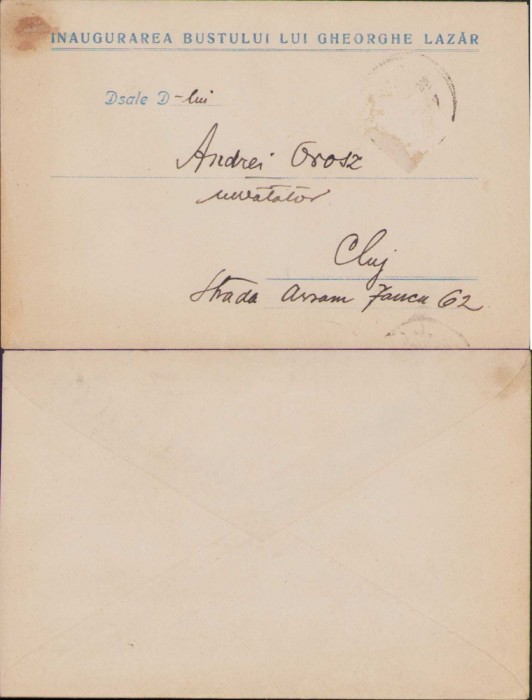 INAUGURAREA BUSTULUI LUI GHEORGHE LAZĂR
Dsale D-lui
Andrei Orosz
învățător
Cluj
Strada Avram Iancu 62